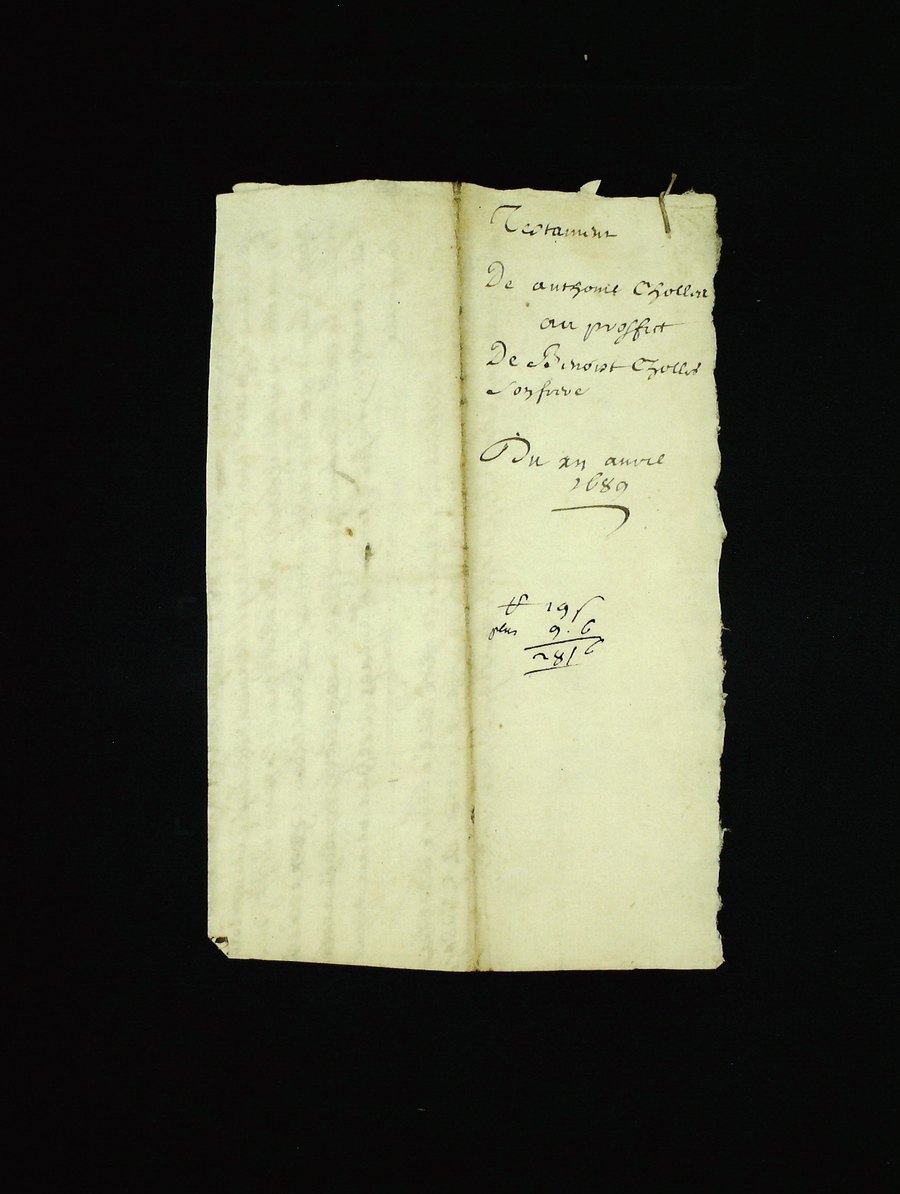 Testament
De anthoine Chollet
au proffict
De Benoist Chollet
son frere
Du xii avril
1689
tt 19 s
plus 9. 6
28 s 6